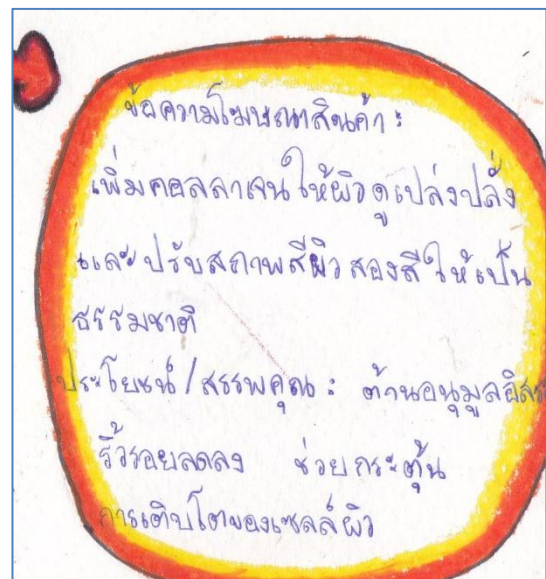 ข้อความโฆษณาสินค้า :
เพิ่มคอลลาเจนให้ผิวดูเปล่งปลั่ง
และปรับสภาพสีผิวสองสีให้เป็น
ธรรมชาติ
ประโยชน์ / สรรพคุณ : ต้านอนุมูลอิสระ
ริ้วรอยลดลง ช่วยกระตุ้น
การเติบโตของเซลล์ผิว